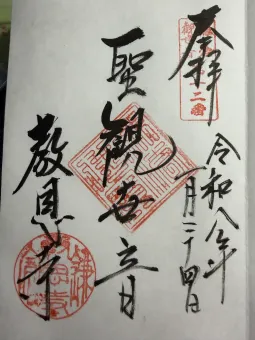 奉拝
令和八年
一月二十四日
聖観世音
教恩寺